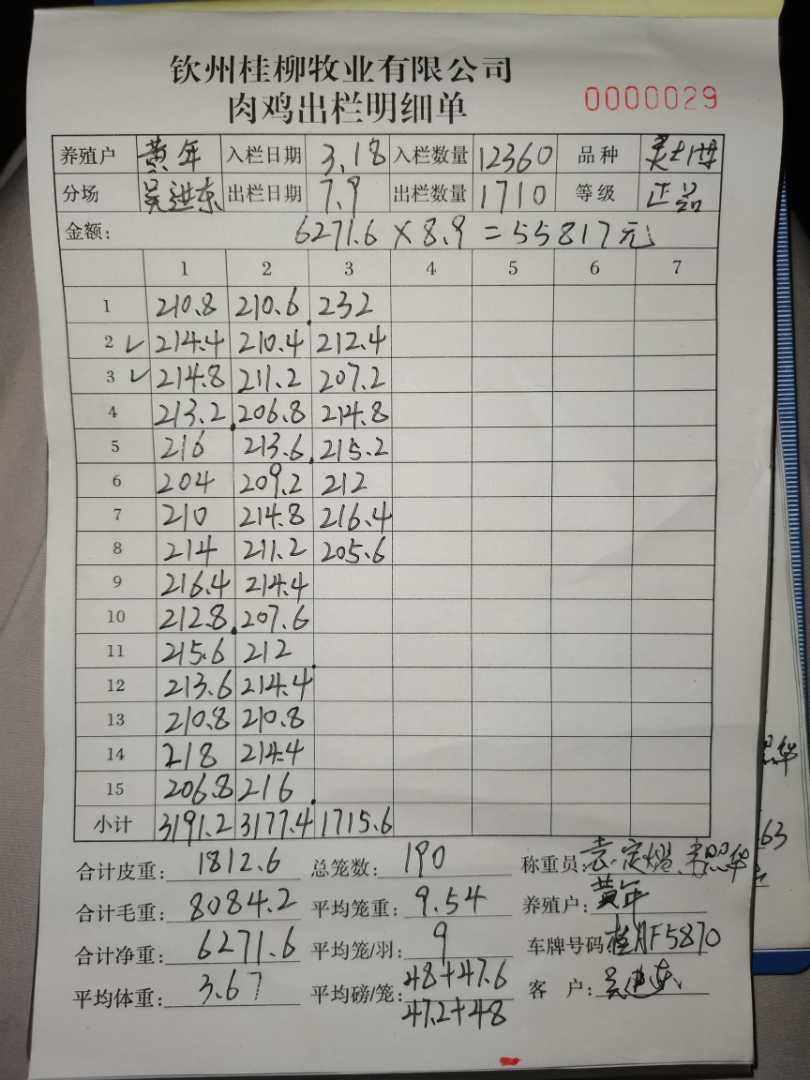 钦州桂柳牧业有限公司
肉鸡出栏明细单 0000029
养殖户 黄年 入栏日期 3.18 入栏数量 12360 品种
分场 吴进东 出栏日期 7.9 出栏数量 1710 等级 正品
金额: 6271.6×8.9=55817元
1 2 3 4 5 6 7
1 210.8 210.6 232
2 ✓ 214.4 210.4 212.4
3 ✓ 214.8 211.2 207.2
4 213.2 206.8 214.8
5 216 213.6 215.2
6 204 209.2 212
7 210 214.8 216.4
8 214 211.2 205.6
9 216.4 214.4
10 212.8 207.6
11 215.6 212
12 213.6 214.4
13 210.8 210.8
14 218 214.4
15 206.8 216
小计 3191.2 3177.4 1715.6
合计皮重: 1812.6 总笼数: 190 称重员:
合计毛重: 8084.2 平均笼重: 9.54 养殖户: 黄年
合计净重: 6271.6 平均笼/羽: 9 车牌号码 F5870
平均体重: 3.67 平均磅/笼: 48+47.6 客户: 吴进东
47.2+48
63